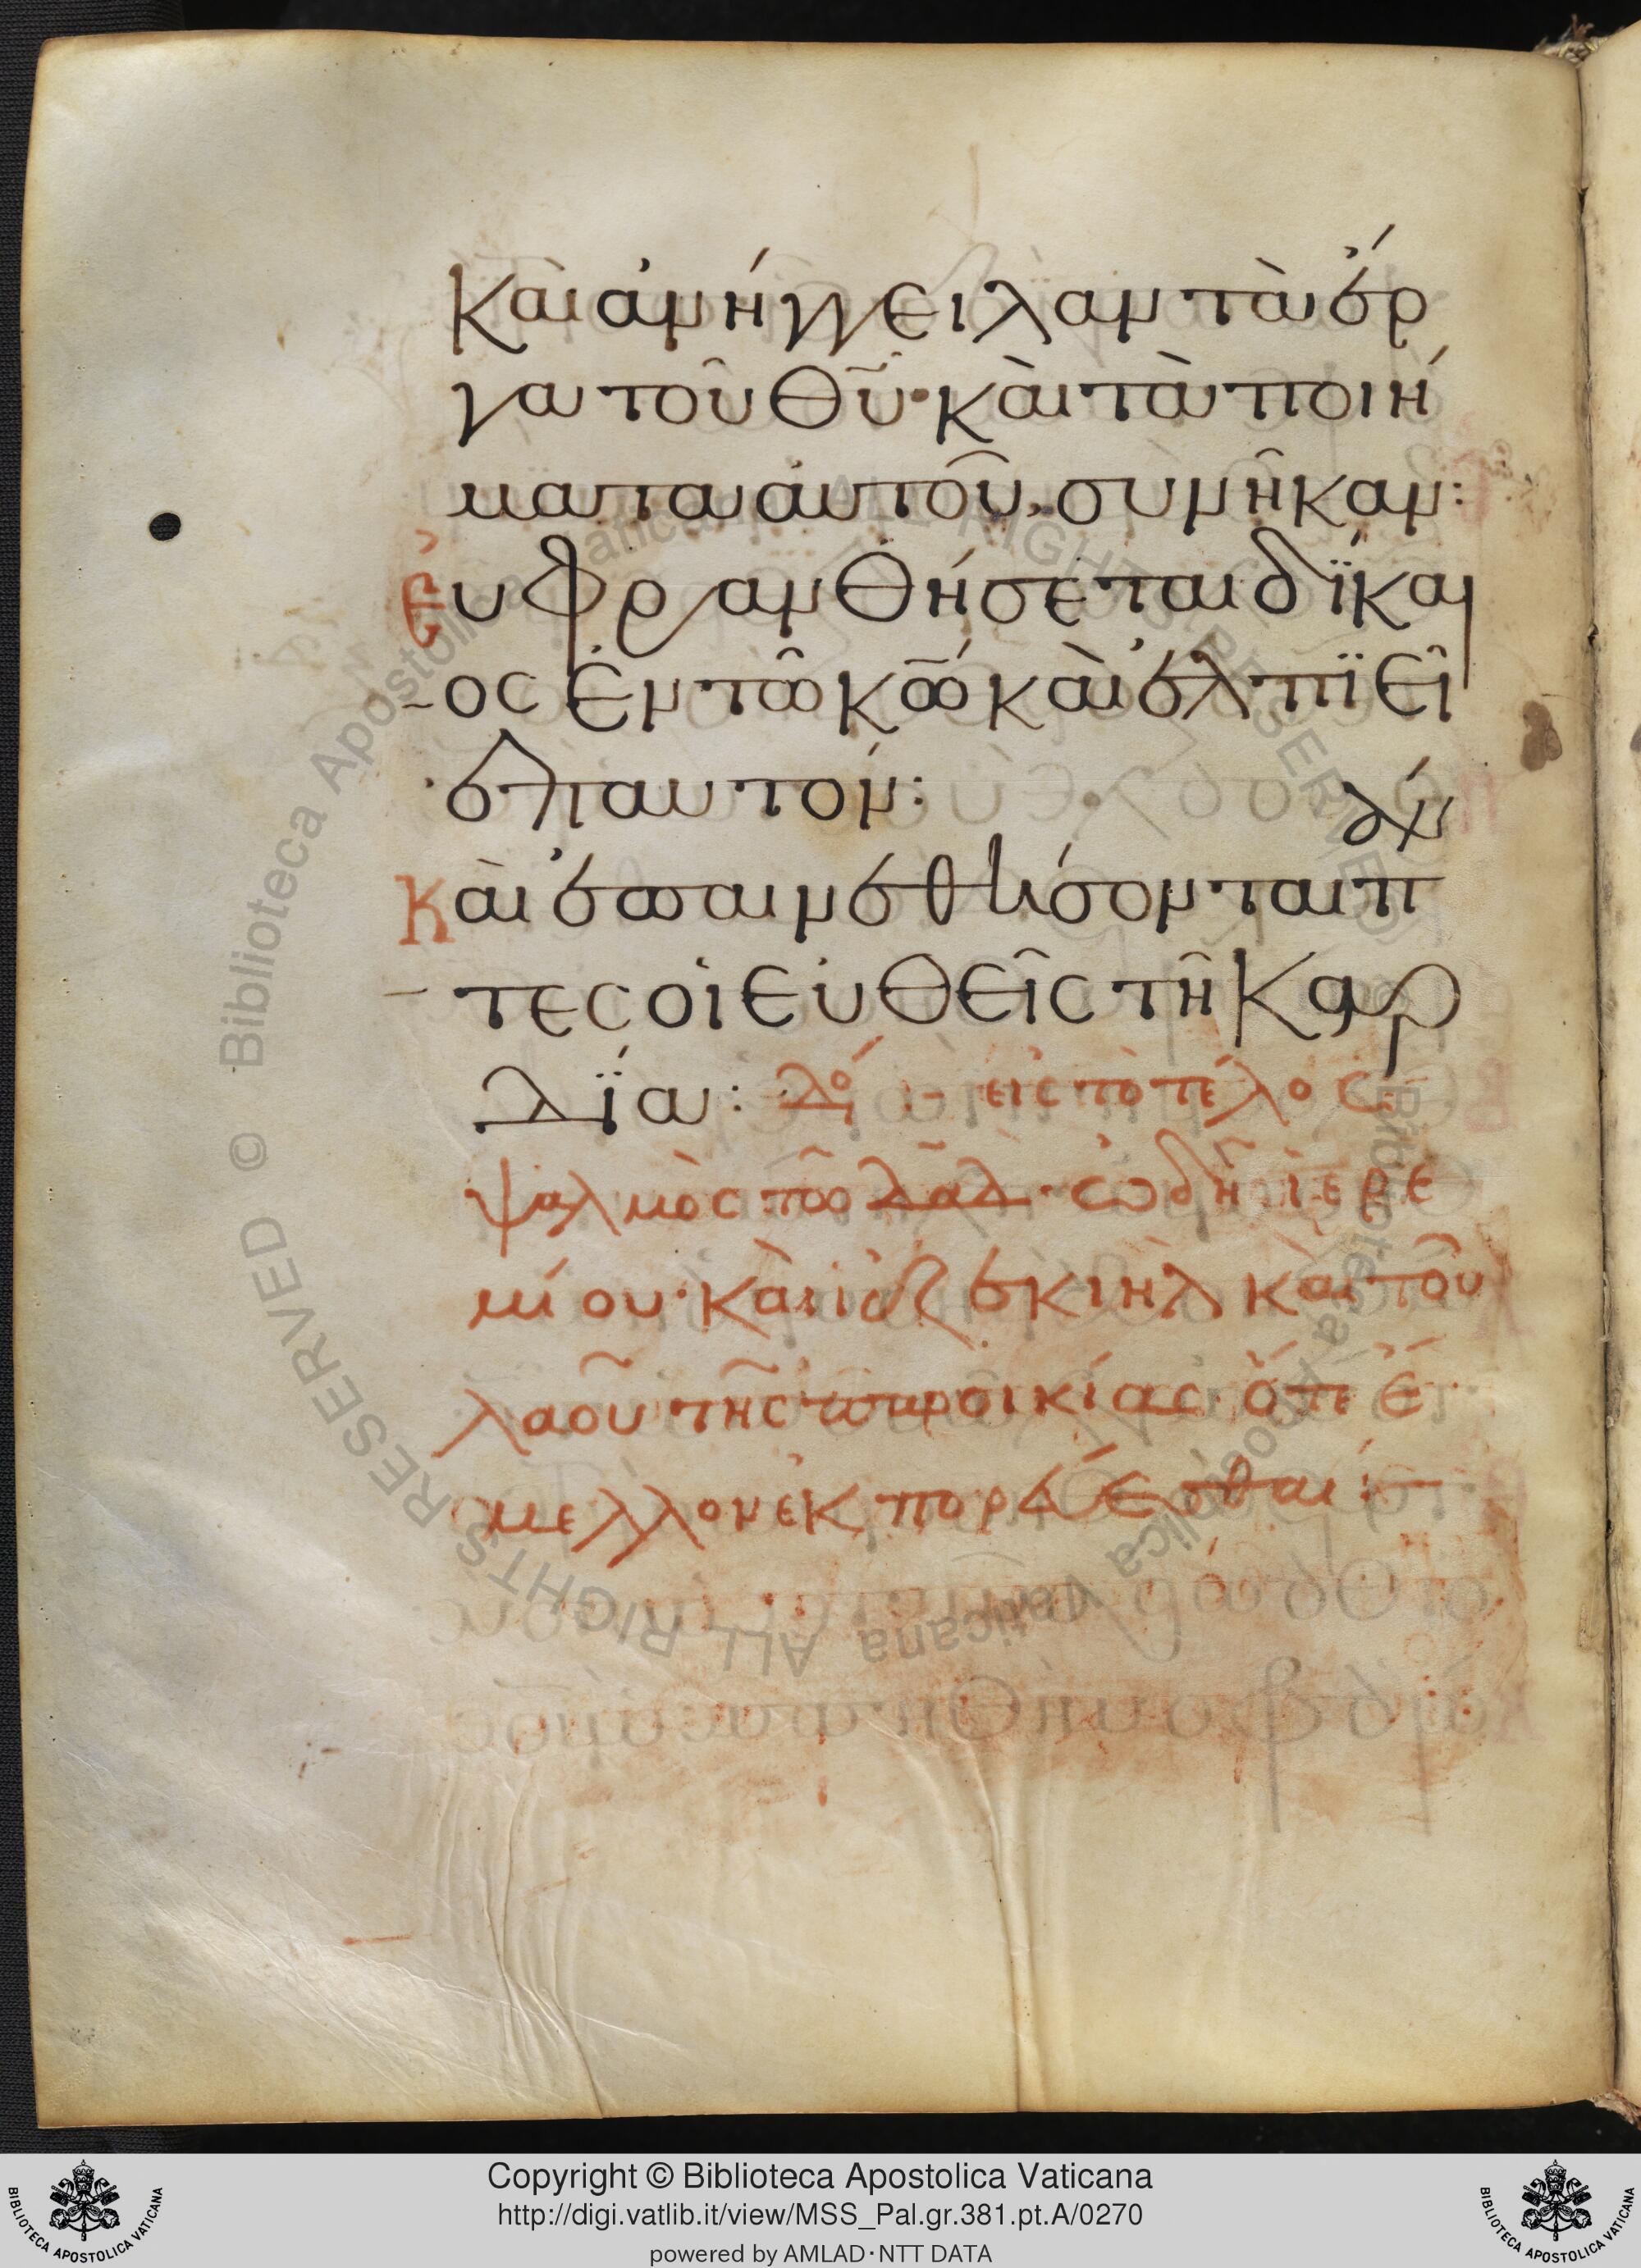 Καὶ ἀνήγγειλαν τὰ ἔρ
γα τοῦ θ̅υ̅· καὶ τὰ ποιή
ματα αὐτοῦ συνῆκαν:
Εὐφρανθήσεται δίκαι
ος ἐν τῶ κ̅ω̅ καὶ ἐλπϊεῖ
ἐπ αυτόν:
Καὶ ἐπαινεθήσονται π
τες οἱ εὐθεῖς τῆ καρ
δΐα: δό εἰς τὸ τέλος
ψαλμὸς τῶ δ̅α̅δ̅· ὠδὴ ἱερε
μίου· καὶ ἰεζεκιὴλ καὶ τοῦ
λαοῦ τῆς παροικίας· ὅτε ἔ
μελλον ἐκπορεύεσθαι:
Copyright © Biblioteca Apostolica Vaticana
http://digi.vatlib.it/view/MSS_Pal.gr.381.pt.A/0270
powered by AMLAD·NTT DATA
BIBLIOTECA APOSTOLICA VATICANA
BIBLIOTECA APOSTOLICA VATICANA
© Biblioteca Apostolica Vaticana ALL RIGHTS RESERVED © Biblioteca Apostolica Vaticana ALL RIGHTS RESERVED